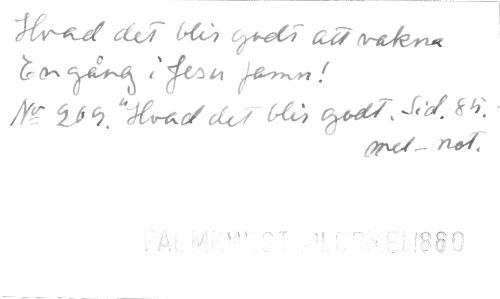 Hvad det blir godt att vakna
En gång i Jesu famn!
No 209. "Hvad det blir godt. Sid. 85.
mel-not.
PALMKWIST PILGRMEL 1860